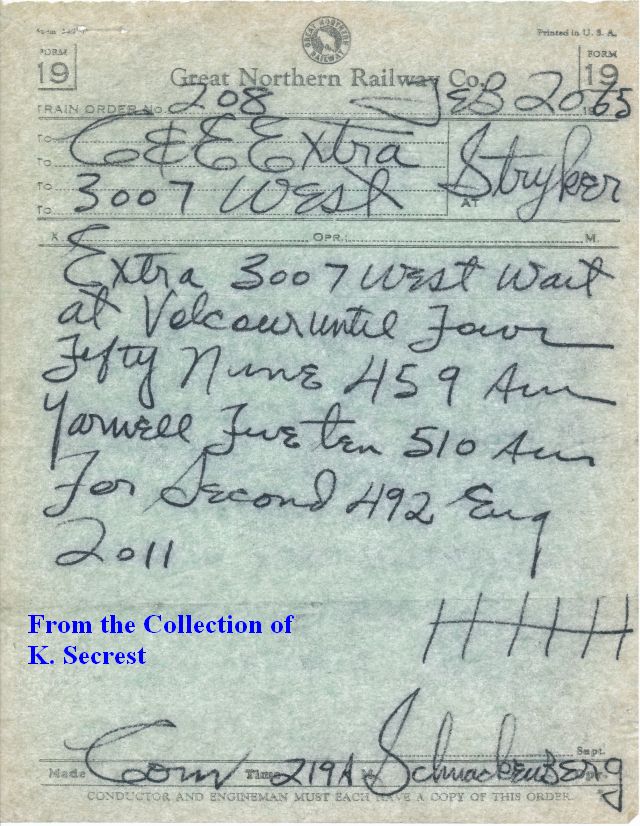 Printed in U. S. A.
GREAT NORTHERN RAILWAY
FORM 19
FORM 19
Great Northern Railway Co.
TRAIN ORDER No. 208 FEB 20 1965
To C&E Extra
To
To 3007 West AT Stryker
To
X OPR.; M.
Extra 3007 West Wait
at Volcour until Four
Fifty Nine 459 Am
Yarnell Five ten 510 Am
For Second 492 Eng
2011
HHH
From the Collection of
K. Secrest
Supt.
Made Com Time 219A M Schnackenberg Opr.
CONDUCTOR AND ENGINEMAN MUST EACH HAVE A COPY OF THIS ORDER.